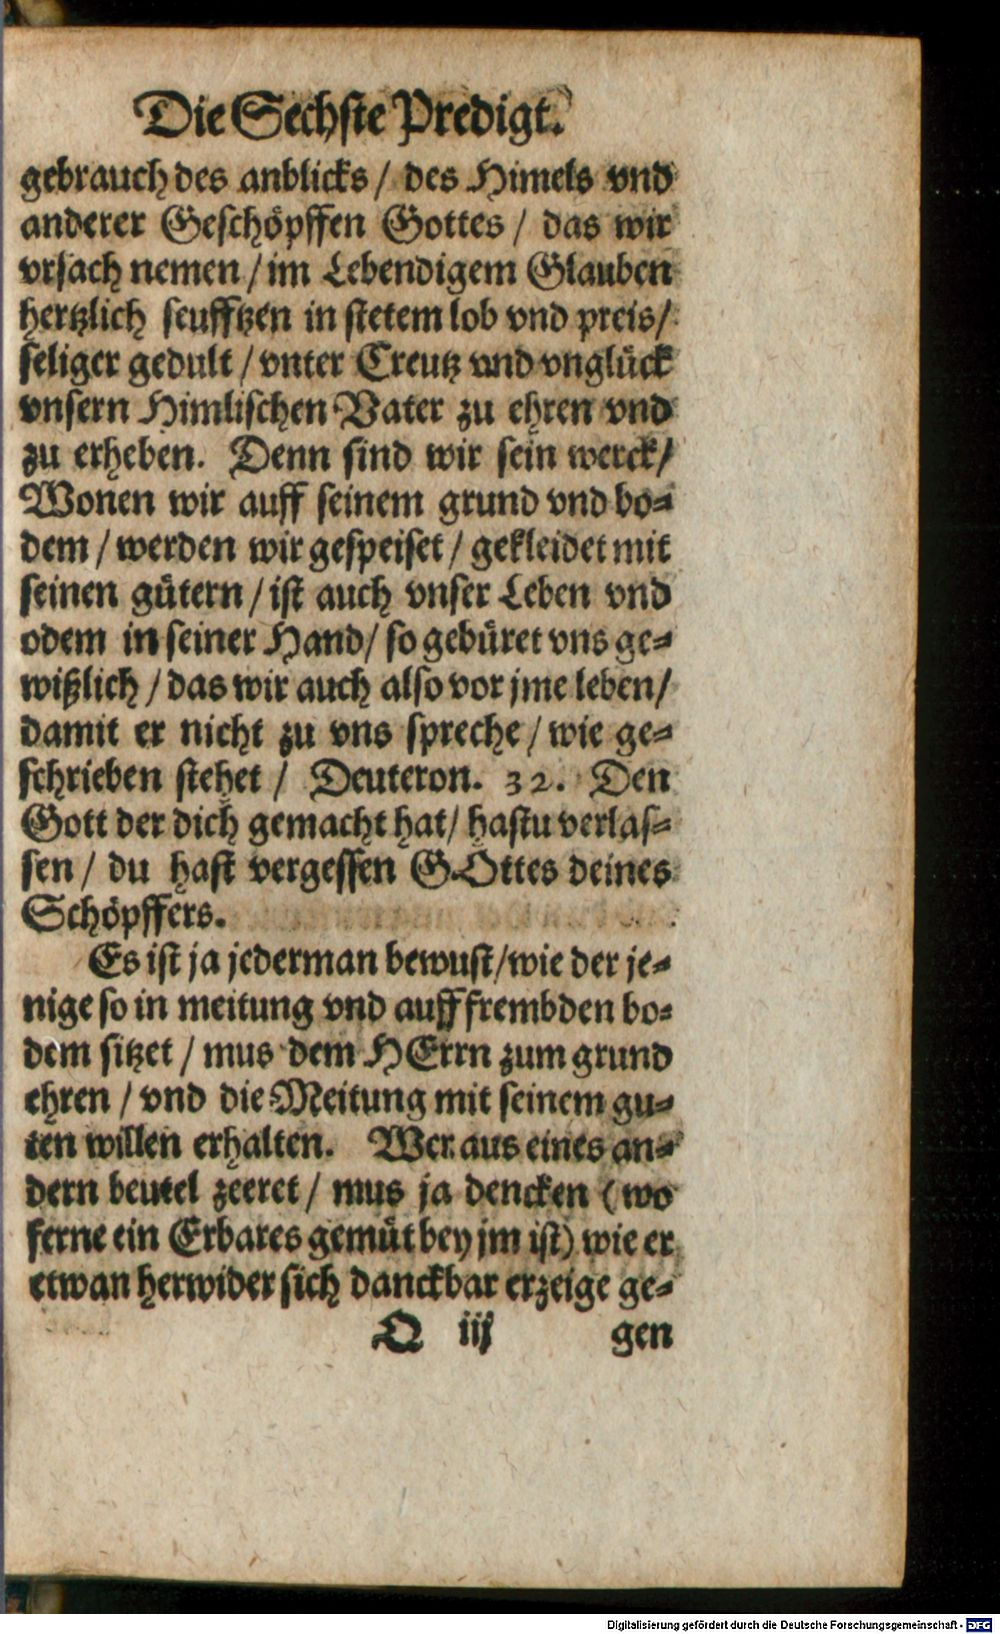 Die Sechste Predigt.
gebrauch des anblicks / des Himels vnd
anderer Geschöpffen Gottes / das wir
vrsach nemen / im Lebendigem Glauben
hertzlich seufftzen in stetem lob vnd preis /
seliger gedult / vnter Creutz vnd vnglück
vnsern Himlischen Vater zu ehren vnd
zu erheben. Denn sind wir sein werck /
Wonen wir auff seinem grund vnd bo⸗
dem / werden wir gespeiset / gekleidet mit
seinen gütern / ist auch vnser Leben vnd
odem in seiner Hand / so gebüret vns ge⸗
wißlich / das wir auch also vor jme leben /
damit er nicht zu vns spreche / wie ge⸗
schrieben stehet / Deuteron. 32. Den
Gott der dich gemacht hat / hastu verlas⸗
sen / du hast vergessen GOttes deines
Schöpffers.
Es ist ja jederman bewust / wie der je⸗
nige so in meitung vnd auff frembden bo⸗
dem sitzet / mus dem HErrn zum grund
ehren / vnd die Meitung mit seinem gu⸗
ten willen erhalten. Wer aus eines an⸗
dern beutel zeeret / mus ja dencken (wo
ferne ein Erbares gemüt bey jm ist) wie er
etwan herwider sich danckbar erzeige ge⸗
Q iij gen
Digitalisierung gefördert durch die Deutsche Forschungsgemeinschaft - DFG